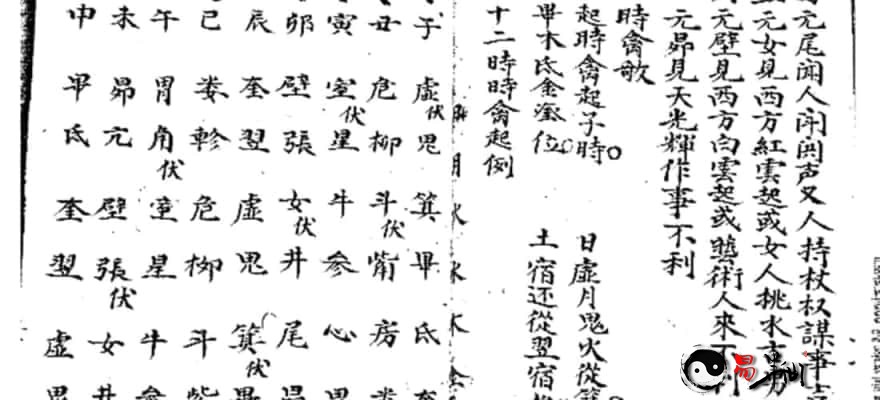 元尾闻人闹声又人持杖权謀事
元女見西方紅雲起或女人挑水
元壁見西方白雲起或藝術人來不利
元昴見天光輝作事不利
時禽歌
起時禽起子時 日虚月鬼火從箕
畢木氐金奎位 土宿还從翌宿
十二時時禽起例
月火水木金
子 虚伏 鬼 箕 畢 氐 奎
丑 危 柳 斗伏 觜 房 娄
寅 室伏 星 牛 参 心 胃
卯 壁 張 女伏 井 尾 昴
辰 奎 翌 虚 鬼 箕伏 畢
巳 娄 軫 危 柳 斗 觜
午 胃 角伏 室 星 牛 参
未 昴 亢 壁 張伏 女 井
申 畢 氐 奎 翌 虚 鬼
易